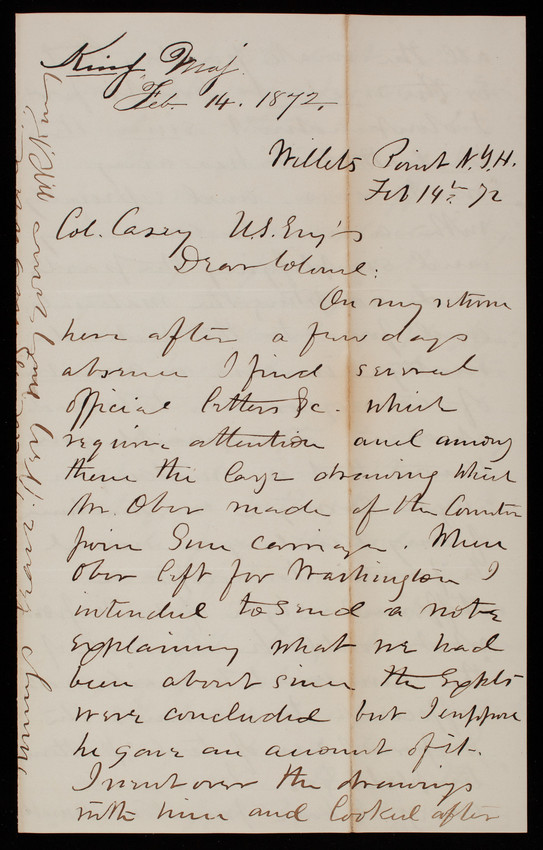 King, Maj.
Feb. 14. 1872.
Willets Point N.Y.H.
Feb 14th 72
Col. Casey U.S. Eng's
Dear Colonel:
On my return
here after a few days
absence I find several
official letters &c. which
require attention and among
them the large drawing which
Mr. Ober made of the Counter
poise Gun carriage. When
Ober left for Washington I
intended to send a note
explaining what we had
been about since the Expts
were concluded but I suppose
he gave an account of it.
I went over the drawings
with him and looked after